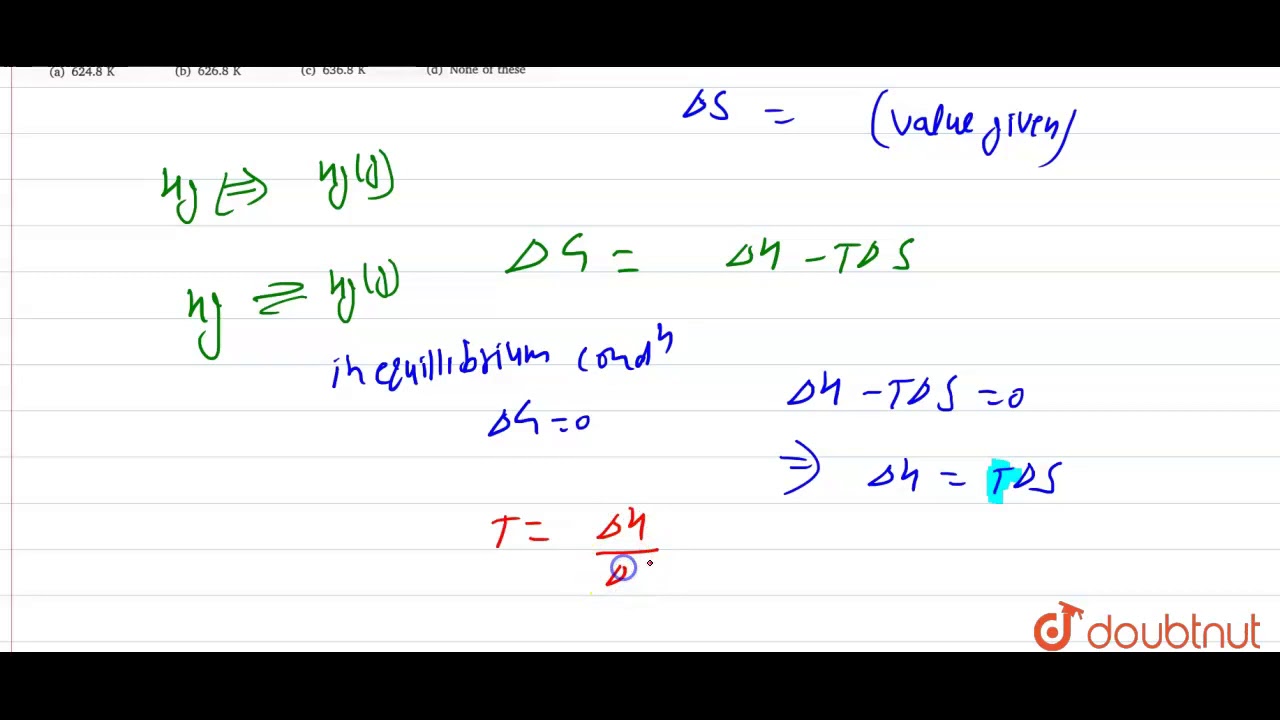 (a) 624.8 K (b) 626.8 K (c) 636.8 K (d) None of these
ΔS = (value given)
Hg ⇌ Hg(g)
ΔG = ΔH - TΔS
Hg ⇌ Hg(g)
in equillibrium condn
ΔG = 0
ΔH - TΔS = 0
⇒ ΔH = TΔS
T = ΔH / Δ
doubtnut